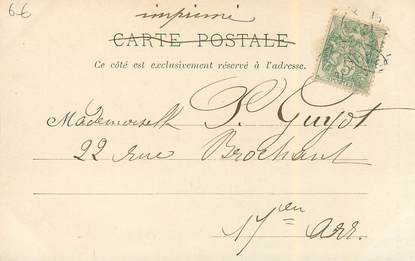 6€
imprimé
CARTE POSTALE
Ce côté est exclusivement réservé à l'adresse.
Mademoiselle P. Guyot
22 rue Brochant
17en Arr.